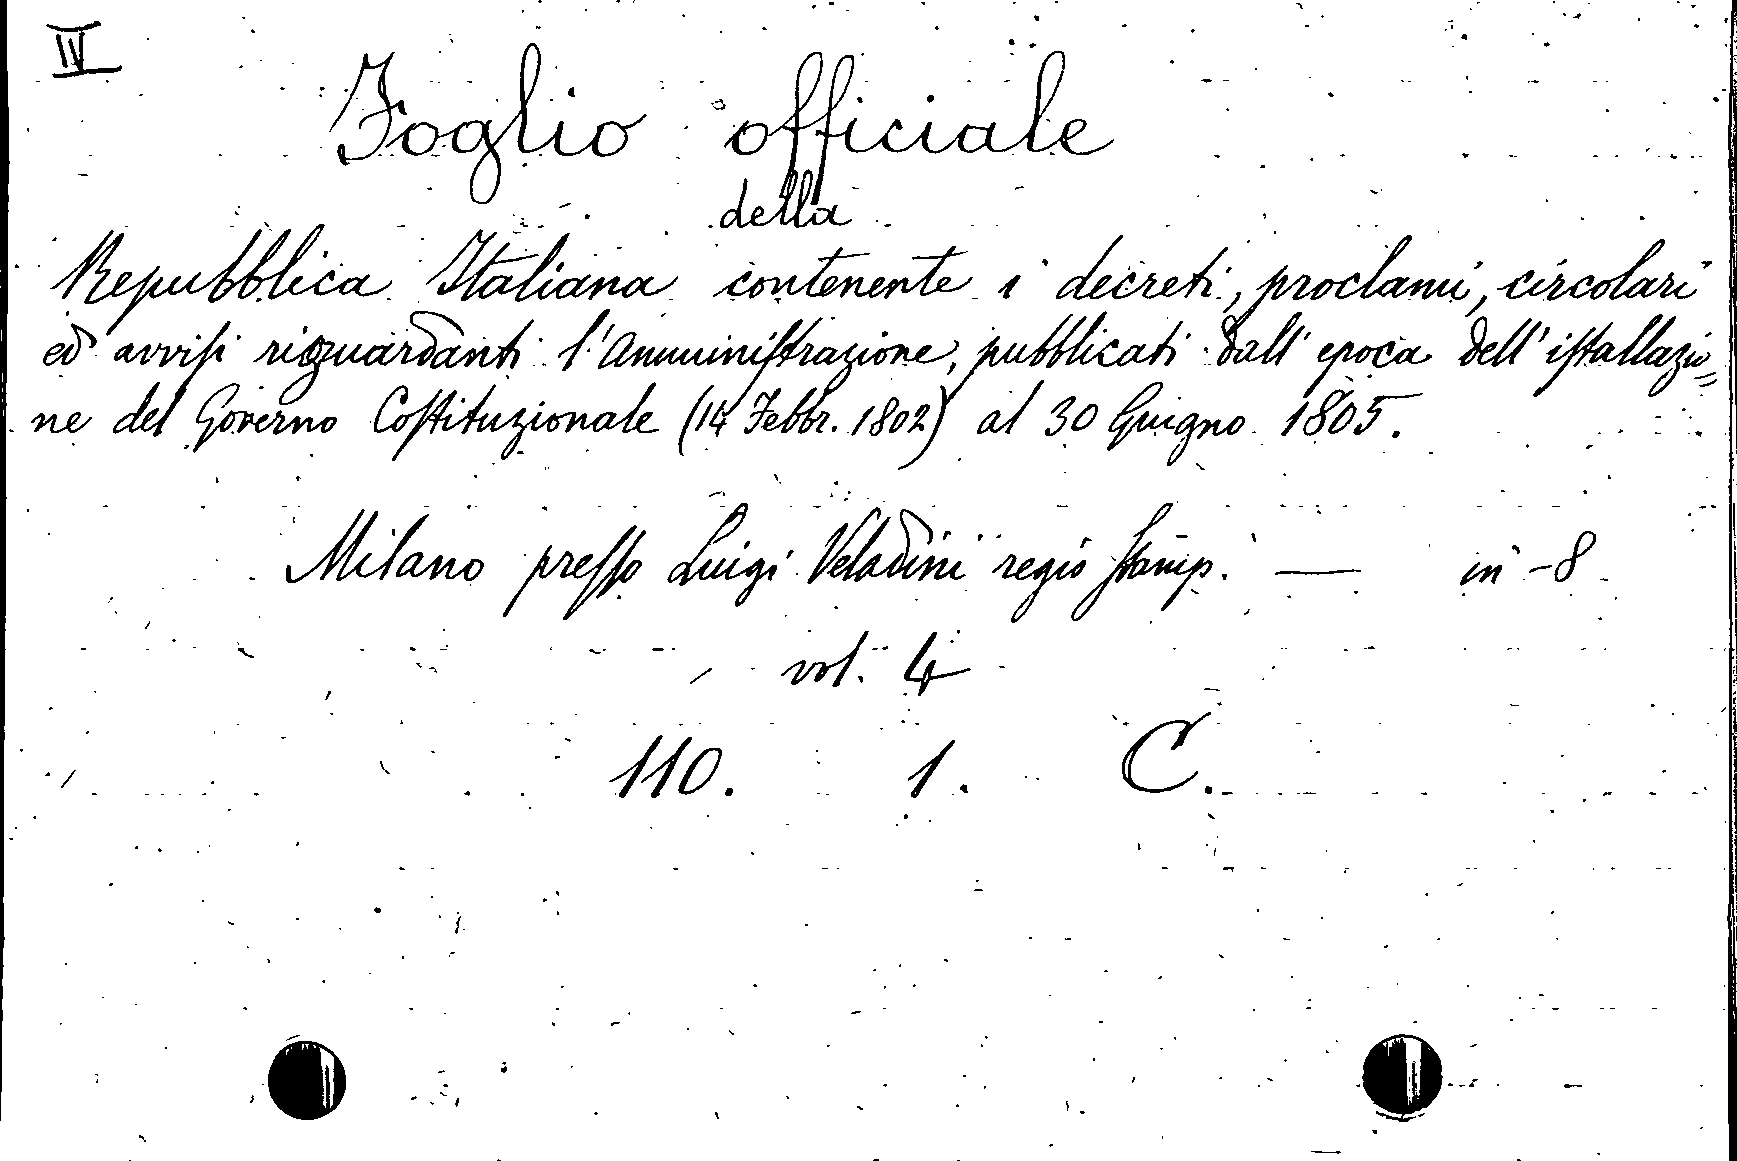 IV
Foglio officiale
della
Repubblica Italiana contenente i decreti, proclami, circolari
ed avviſi riguardanti l'Amminiſtrazione, pubblicati dall' epoca dell' iſtallazio=
ne del Governo Coſtituzionale (14 Febbr. 1802) al 30 Giugno 1805.
Milano preſſo Luigi Veladini regio ſtamp. — in -8
vol. 4
110. 1. C.